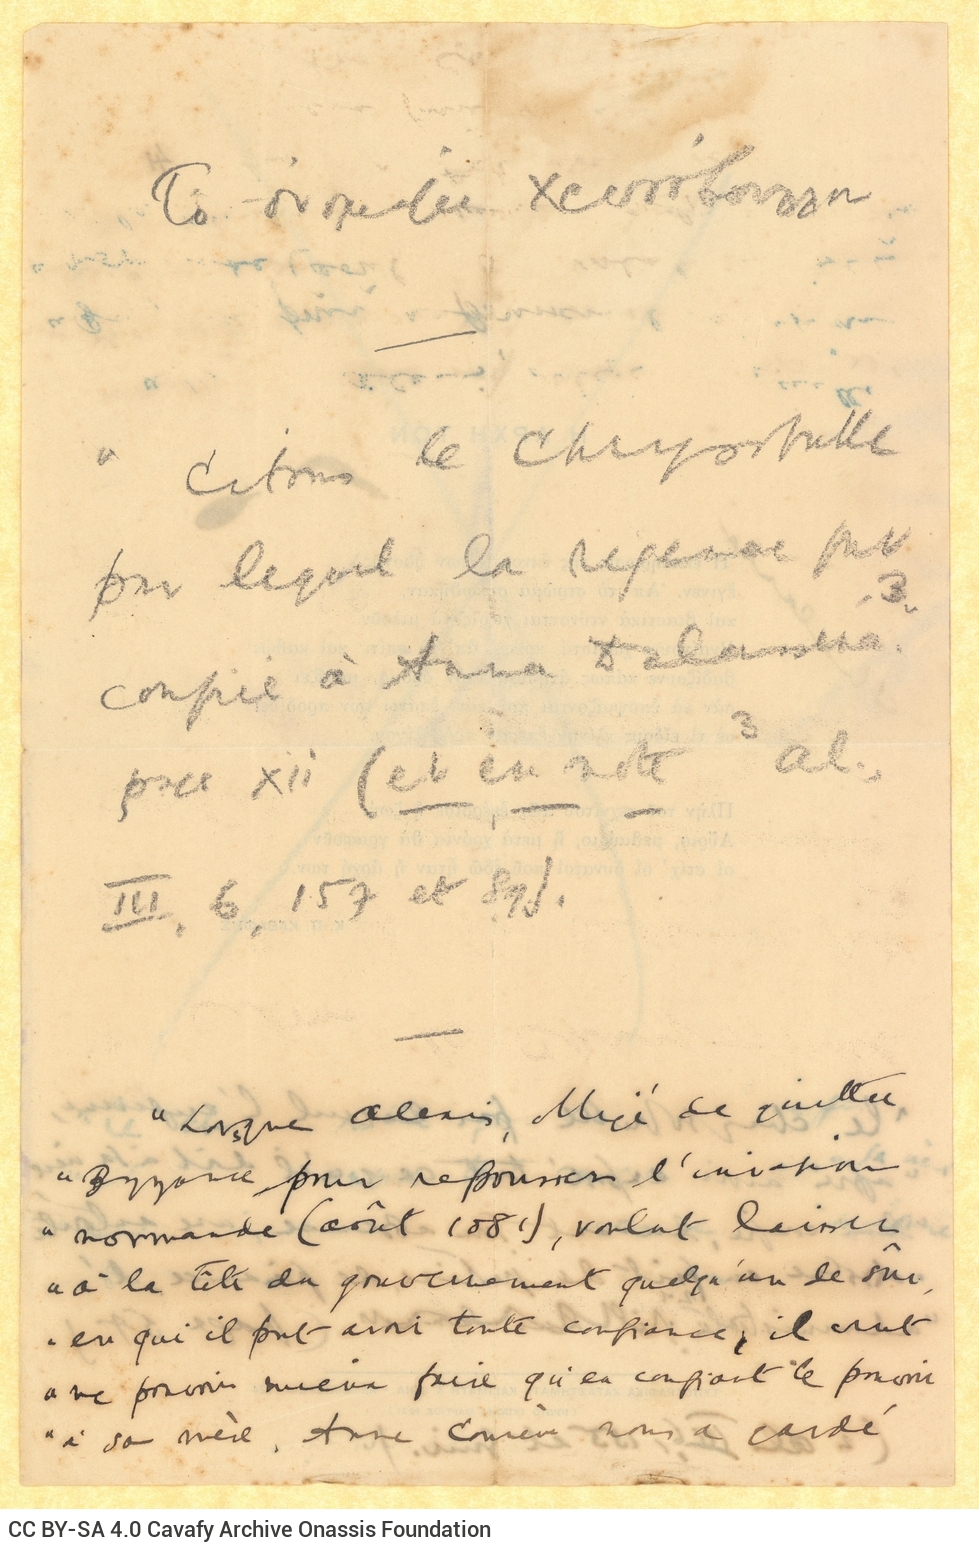 Το όνομά του χρυσόβουλλον
" Citons le Chrysobulle
par lequel la régence fut
confiée à Anna Dalassena. 3.
pree XII (et en note 3 Al.,
III, 6, 157 et sq).
"Lorsque Alexis, obligé de quitter
"Byzance pour repousser l'invasion
"normande (août 1081), voulut laisser
"à la tête du gouvernement quelqu'un de sûr,
"en qui il put avoir toute confiance, il crut
"ne pouvoir mieux faire qu'en confiant le pouvoir
"à sa mère. Anne Comnène nous a gardé
CC BY-SA 4.0 Cavafy Archive Onassis Foundation